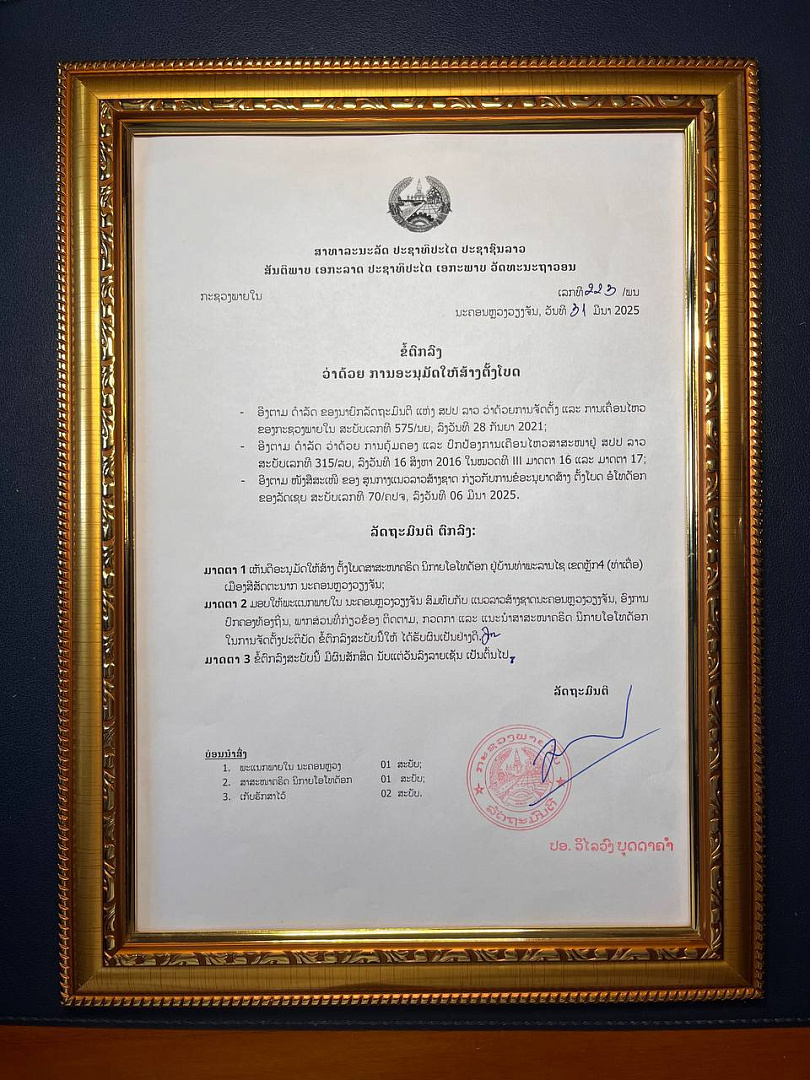 ສາທາລະນະລັດ ປະຊາທິປະໄຕ ປະຊາຊົນລາວ
ສັນຕິພາບ ເອກະລາດ ປະຊາທິປະໄຕ ເອກະພາບ ວັດທະນະຖາວອນ
ກະຊວງພາຍໃນ
ເລກທີ 223 /ພນ
ນະຄອນຫຼວງວຽງຈັນ, ວັນທີ 31 ມີນາ 2025
ຂໍ້ຕົກລົງ
ວ່າດ້ວຍ ການອະນຸມັດໃຫ້ສ້າງຕັ້ງໂບດ
- ອີງຕາມ ດໍາລັດ ຂອງນາຍົກລັດຖະມົນຕີ ແຫ່ງ ສປປ ລາວ ວ່າດ້ວຍການຈັດຕັ້ງ ແລະ ການເຄື່ອນໄຫວ
ຂອງກະຊວງພາຍໃນ ສະບັບເລກທີ 575/ນຍ, ລົງວັນທີ 28 ກັນຍາ 2021;
- ອີງຕາມ ດໍາລັດ ວ່າດ້ວຍ ການຄຸ້ມຄອງ ແລະ ປົກປ້ອງການເຄື່ອນໄຫວສາສະໜາຢູ່ ສປປ ລາວ
ສະບັບເລກທີ 315/ລບ, ລົງວັນທີ 16 ສິງຫາ 2016 ໃນໝວດທີ III ມາດຕາ 16 ແລະ ມາດຕາ 17;
- ອີງຕາມ ໜັງສືສະເໜີ ຂອງ ສູນກາງແນວລາວສ້າງຊາດ ກ່ຽວກັບການຂໍອະນຸຍາດສ້າງ ຕັ້ງໂບດ ອໍໂທດ໋ອກ
ຂອງລັດເຊຍ ສະບັບເລກທີ 70/ຄປຈ, ລົງວັນທີ 06 ມີນາ 2025.
ລັດຖະມົນຕີ ຕົກລົງ:
ມາດຕາ 1 ເຫັນດີອະນຸມັດໃຫ້ສ້າງ ຕັ້ງໂບດສາສະໜາຄຣິດ ນິກາຍໂອໂທດ໋ອກ ຢູ່ບ້ານທ່າພະລານໄຊ ເຂດຫຼັກ4 (ທ່າເດື່ອ)
ເມືອງສີສັດຕະນາກ ນະຄອນຫຼວງວຽງຈັນ;
ມາດຕາ 2 ມອບໃຫ້ພະແນກພາຍໃນ ນະຄອນຫຼວງວຽງຈັນ ສົມທົບກັບ ແນວລາວສ້າງຊາດນະຄອນຫຼວງວຽງຈັນ, ອົງການ
ປົກຄອງທ້ອງຖິ່ນ, ພາກສ່ວນທີ່ກ່ຽວຂ້ອງ ຕິດຕາມ, ກວດກາ ແລະ ແນະນໍາສາສະໜາຄຣິດ ນິກາຍໂອໂທດ໋ອກ
ໃນການຈັດຕັ້ງປະຕິບັດ ຂໍ້ຕົກລົງສະບັບນີ້ໃຫ້ ໄດ້ຮັບຜົນເປັນຢ່າງດີ.
ມາດຕາ 3 ຂໍ້ຕົກລົງສະບັບນີ້ ມີຜົນສັກສິດ ນັບແຕ່ວັນລົງລາຍເຊັນ ເປັນຕົ້ນໄປ.
ລັດຖະມົນຕີ
ບ່ອນນໍາສົ່ງ
1. ພະແນກພາຍໃນ ນະຄອນຫຼວງ 01 ສະບັບ;
2. ສາສະໜາຄຣິດ ນິກາຍໂອໂທດ໋ອກ 01 ສະບັບ;
3. ເກັບຮັກສາໄວ້ 02 ສະບັບ.
ກະຊວງພາຍໃນ
ລັດຖະມົນຕີ
ປອ. ວິໄລວົງ ບຸດດາຄໍາ